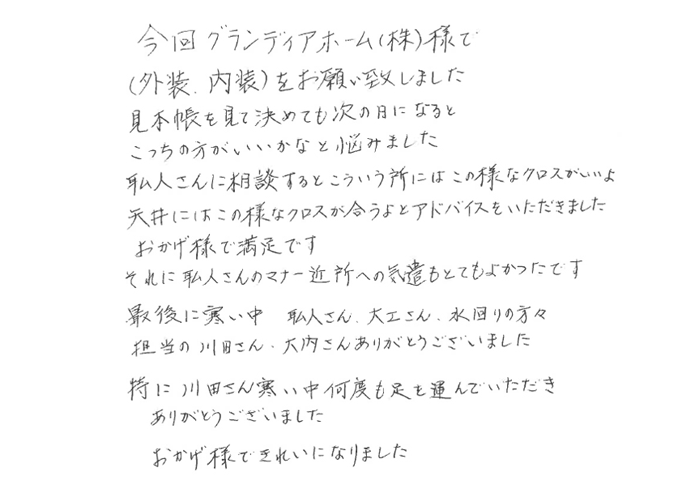 今回グランディアホーム(株)様で
(外装、内装)をお願い致しました
見本帳を見て決めても次の日になると
こっちの方がいいかなと悩みました
耺人さんに相談するとこういう所にはこの様なクロスがいいよ
天井にはこの様なクロスが合うよとアドバイスをいただきました
おかげ様で満足です
それに耺人さんのマナー近所への気遣もとてもよかったです
最後に寒い中 耺人さん、大工さん、水回りの方々
担当の川田さん、大内さんありがとうございました
特に川田さん寒い中何度も足を運んでいただき
ありがとうございました
おかげ様できれいになりました